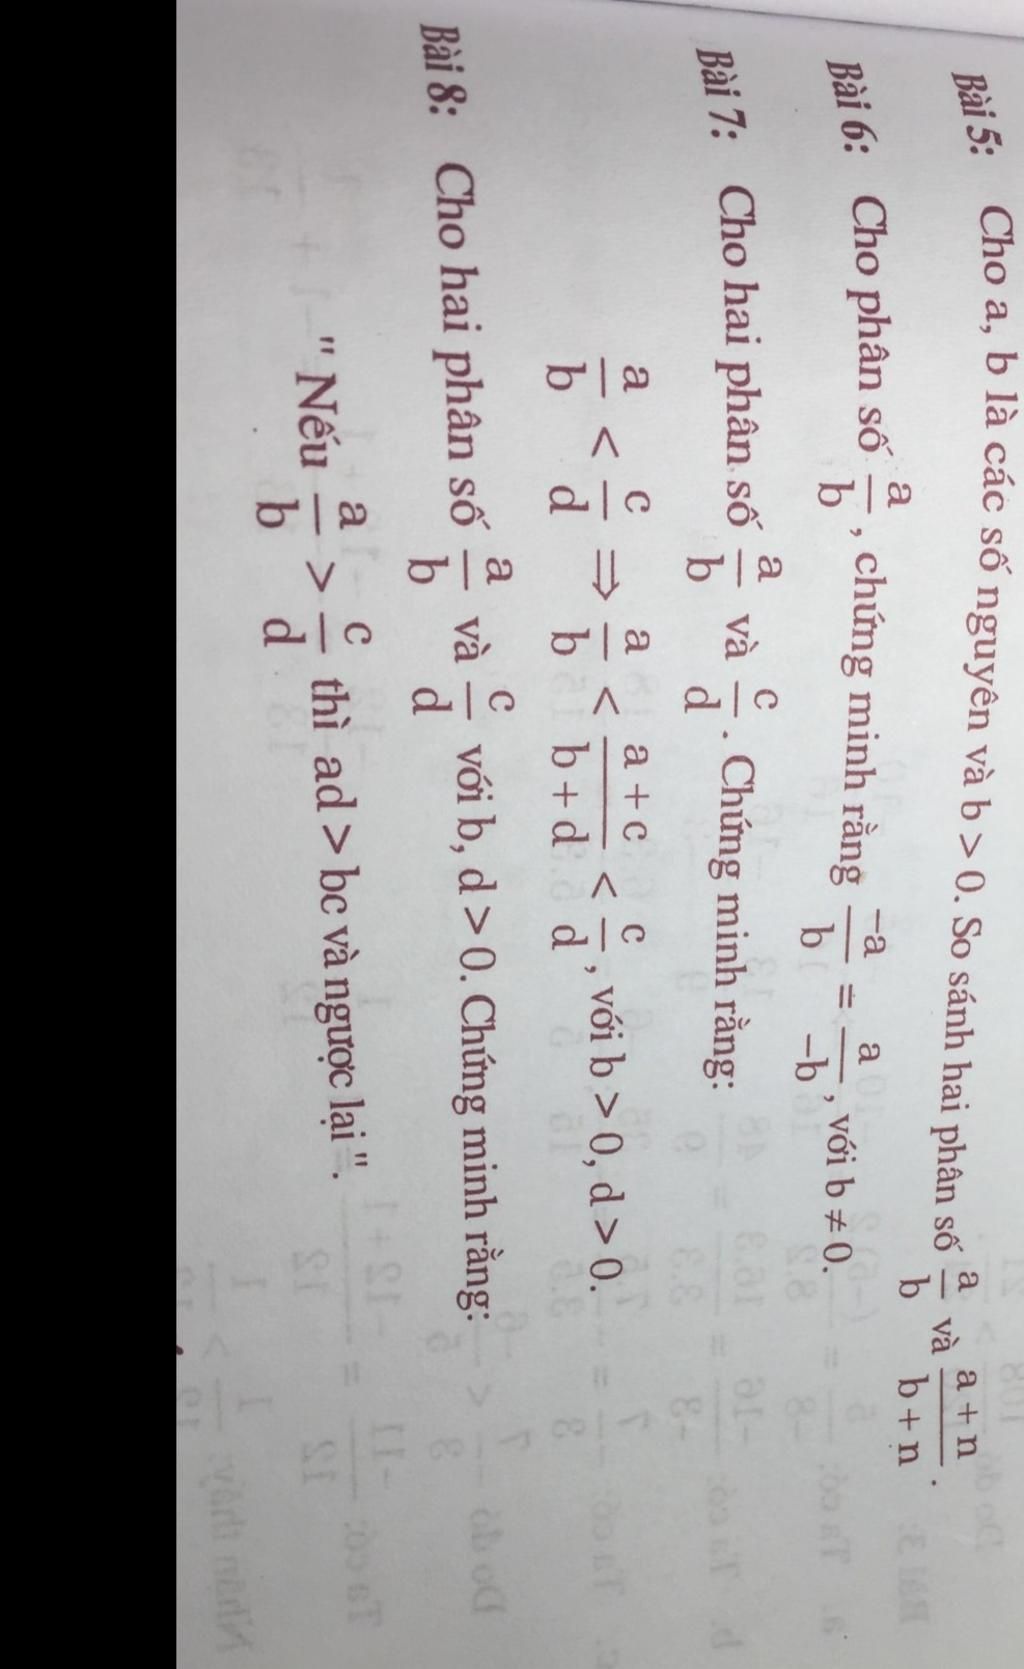 Bài 5: Cho a, b là các số nguyên và b > 0. So sánh hai phân số a/b và (a + n)/(b + n).
Bài 6: Cho phân số a/b, chứng minh rằng -a/b = a/-b, với b ≠ 0.
Bài 7: Cho hai phân số a/b và c/d. Chứng minh rằng:
a/b < c/d ⇒ a/b < (a + c)/(b + d) < c/d, với b > 0, d > 0.
Bài 8: Cho hai phân số a/b và c/d với b, d > 0. Chứng minh rằng:
" Nếu a/b > c/d thì ad > bc và ngược lại".